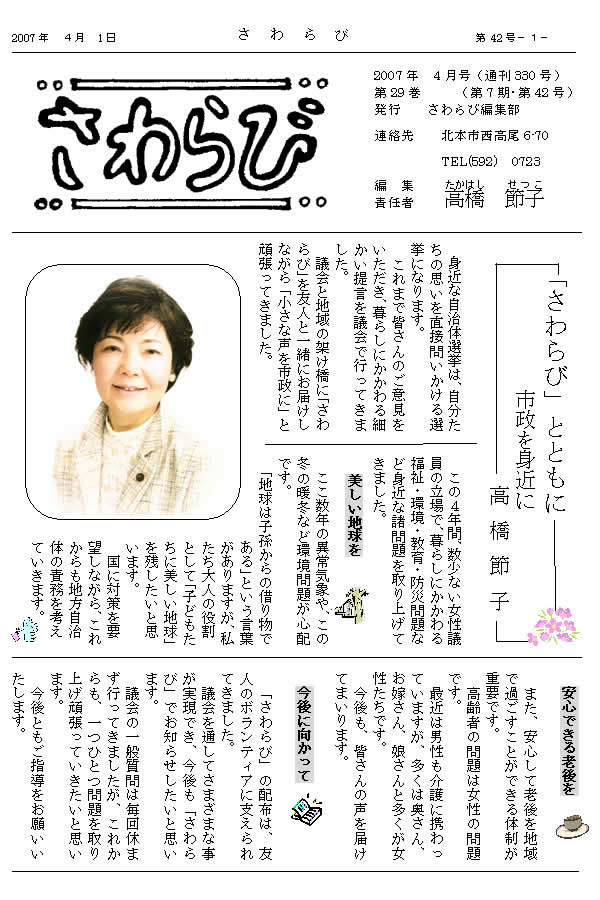 2007年　4月　1日
さ わ ら び
第 42号－1－
さわらび
2007年　4月号（通刊330号）
第29巻　（第7期・第42号）
発行　さわらび編集部
連絡先　北本市西高尾6-70
TEL(592)　0723
編　集
責任者
たかはし　せつこ
高橋　節子
「さわらび」とともに
市政を身近に
高 橋 節 子
身近な自治体選挙は、自分た
ちの思いを直接問いかける選
挙になります。
これまで皆さんのご意見を
いただき、暮らしにかかわる細
かい提言を議会で行ってきま
した。
議会と地域の架け橋に「さわ
らび」を友人と一緒にお届けし
ながら「小さな声を市政に」と
頑張ってきました。
この4年間、数少ない女性議
員の立場で、暮らしにかかわる
福祉・環境・教育・防災問題な
ど身近な諸問題を取り上げて
きました。
美しい地球を
ここ数年の異常気象や、この
冬の暖冬など環境問題が心配
です。
「地球は子孫からの借り物で
ある」という言葉
がありますが、私
たち大人の役割
として「子どもた
ちに美しい地球」
を残したいと思
います。
国に対策を要
望しながら、これ
からも地方自治
体の責務を考え
ていきます。
安心できる老後を
また、安心して老後を地域
で過ごすことができる体制が
重要です。
高齢者の問題は女性の問題
です。
最近は男性も介護に携わっ
ていますが、多くは奥さん、
お嫁さん、娘さんと多くが女
性たちです。
今後も、皆さんの声を届け
てまいります。
今後に向かって
「さわらび」の配布は、友
人のボランティアに支えられ
てきました。
議会を通してさまざまな事
が実現でき、今後も「さわら
び」でお知らせしたいと思い
ます。
議会の一般質問は毎回休ま
ず行ってきましたが、これか
らも、一つひとつ問題を取り
上げ頑張っていきたいと思い
ます。
今後ともご指導をお願いい
たします。